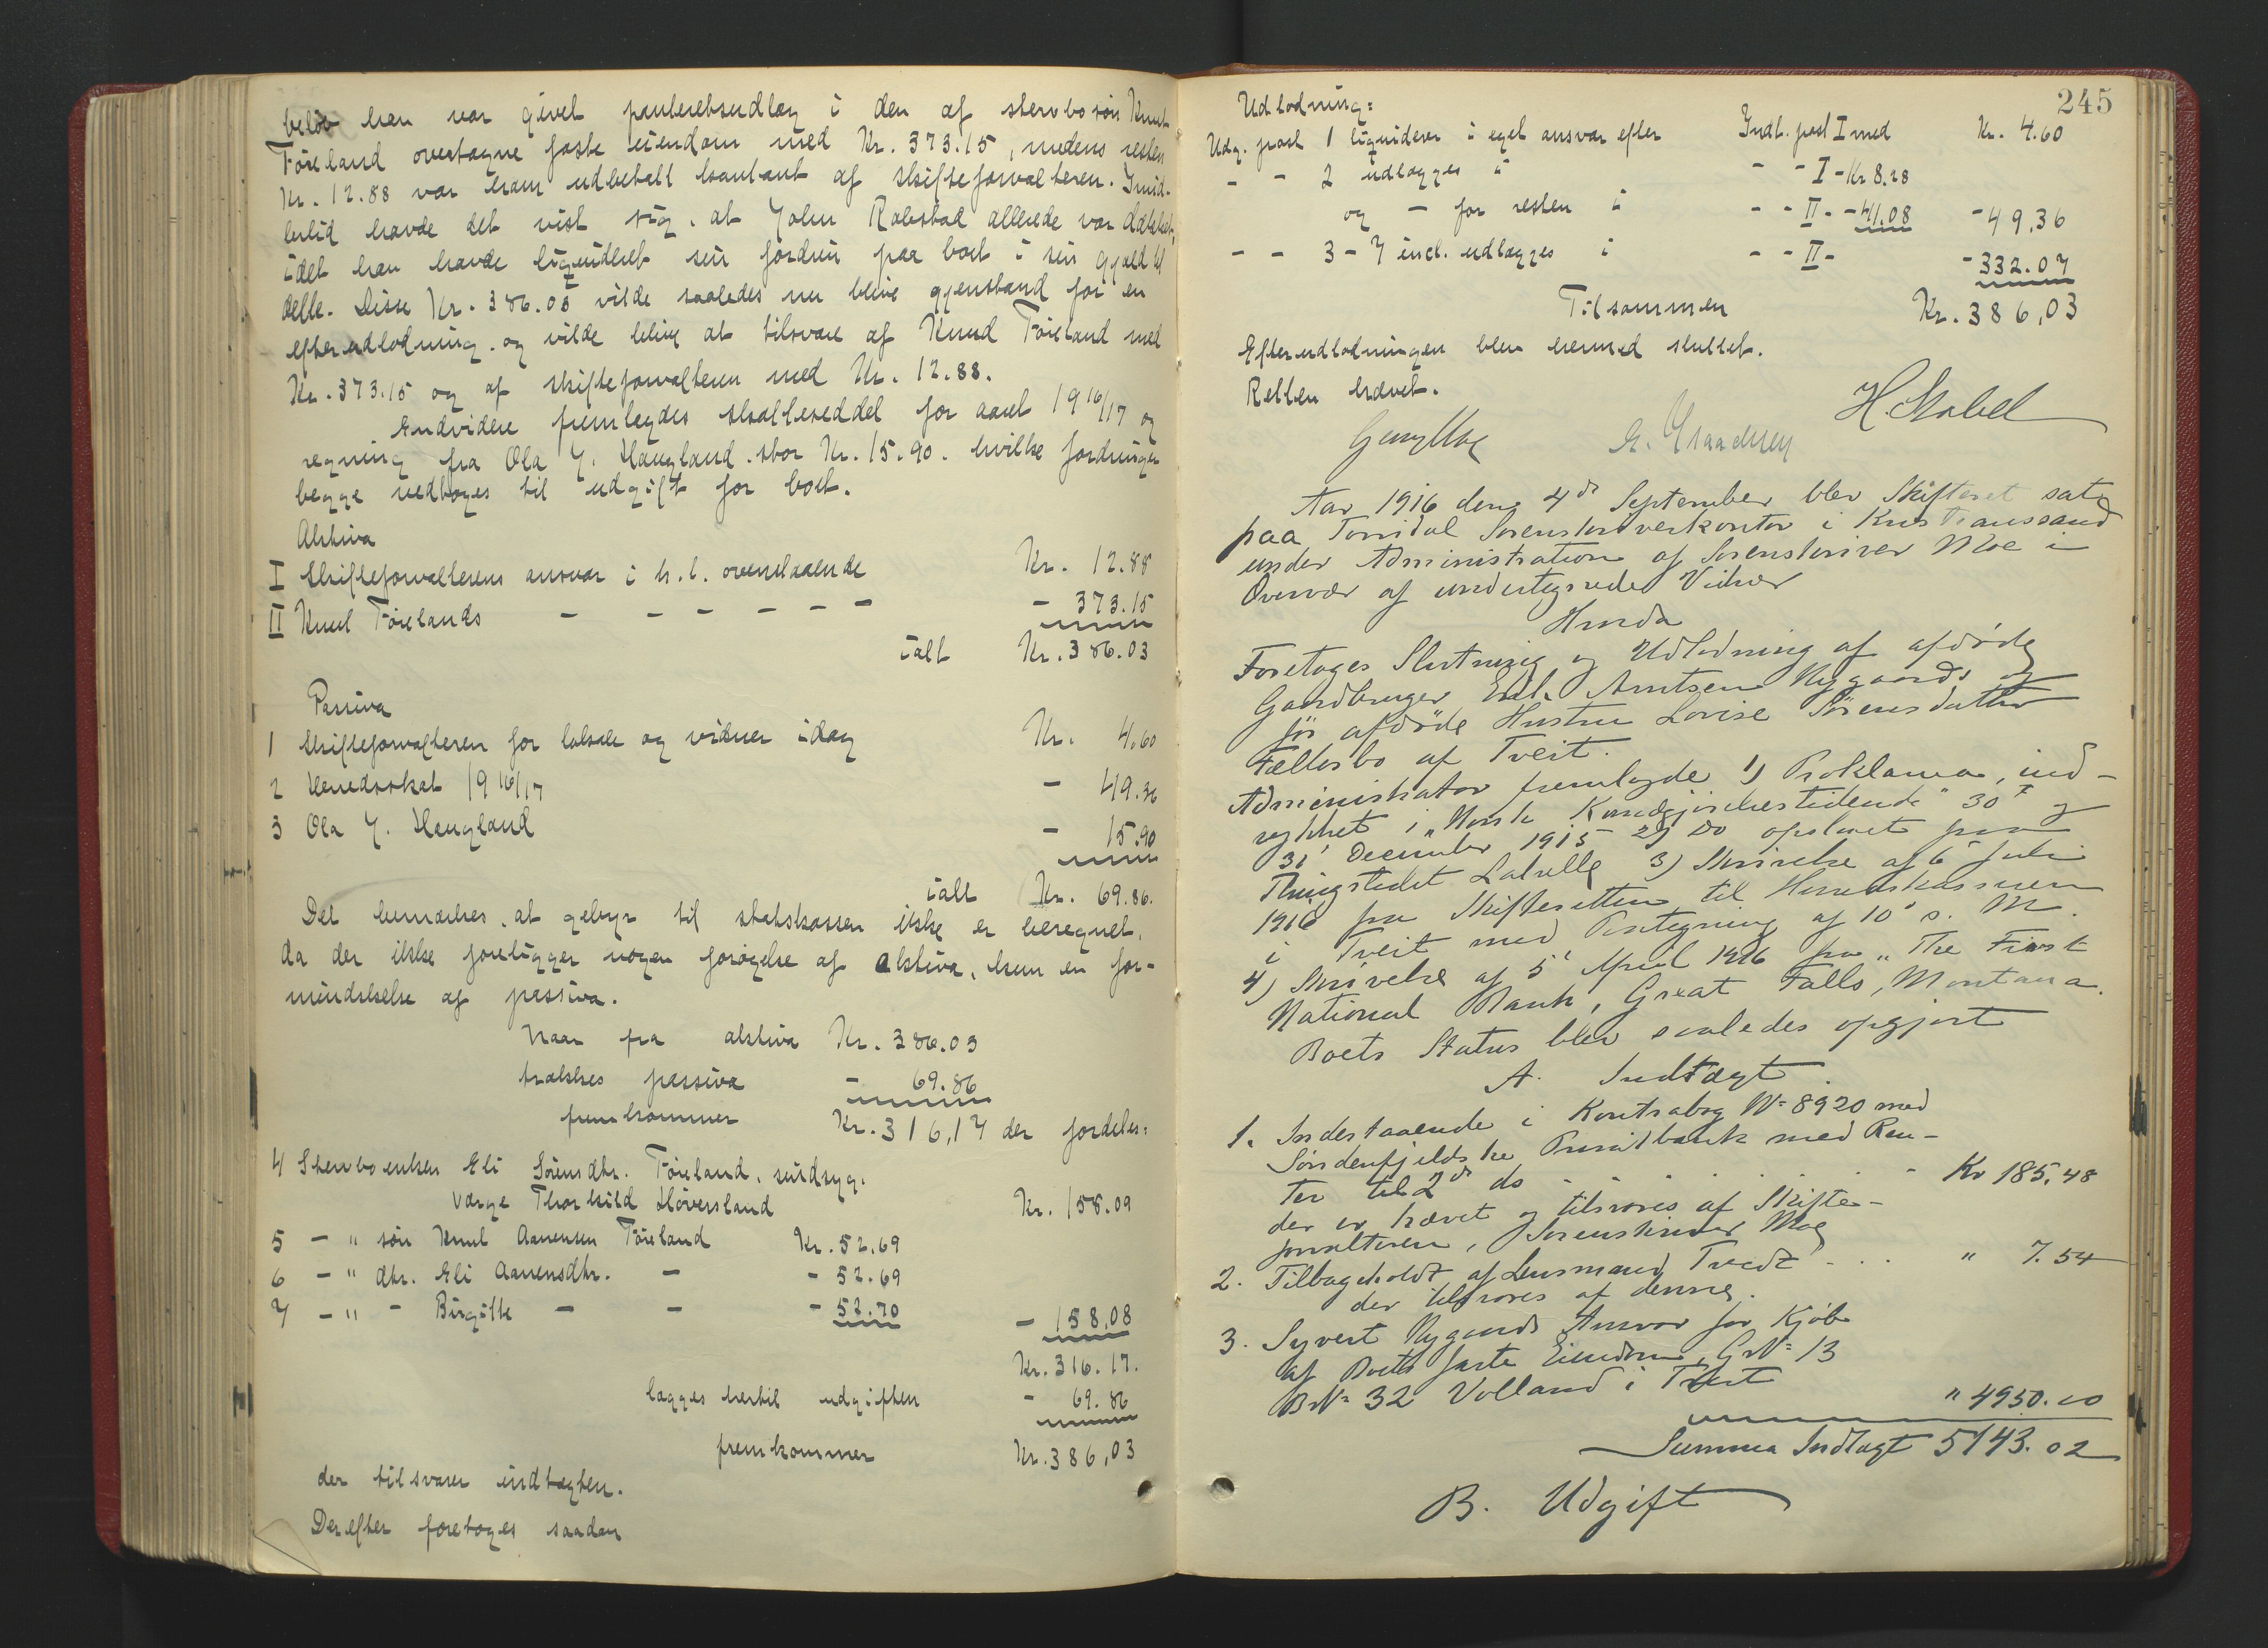 beløb han var givet panteretsudlæg i den af stervbo søn Knut
Føreland overtagne faste eiendom med Kr. 373.15, medens resten
Kr. 12.88 var ham udbetalt kontant af skifteforvalteren. Imid-
lertid havde det vist sig, at John Rabstad allerede var dækket,
idet han havde liquideret sin fordrin paa boet i sin gjæld til
dette. Disse Kr. 386.03 vilde saaledes nu blive gjenstand for en
efterudlodning, og vilde blive at tilsvare af Knud Føreland med
Kr. 373.15 og af skifteforvalteren med Kr. 12.88.
Endvidere fremlagdes skatteseddel for aaret 1916/17 og
regning fra Ola Y. Haugland stor Kr. 15.90. hvilke fordringer
begge vedtoges til udgift for boet.
Aktiva
I Skifteforvalterens ansvar i h.t. ovenstaaende Kr. 12.88
II Knut Førelands - - - - - - - 373.15
ialt Kr. 386.03
Passiva
1 Skifteforvalteren for lokale og vidner idag Kr. 4.60
2 Herredsskat 1916/17 - 49.36
3 Ola Y. Haugland - 15.90
ialt Kr. 69.86.
Det bemærkes, at gebyr til statskassen ikke er beregnet,
da der ikke foreligger nogen forøgelse af aktiva, kun en for-
mindskelse af passiva.
Naar fra aktiva Kr. 386.03
trækkes passiva - 69.86
fremkommer Kr. 316,17 der fordeles:
4 Stervboenken Eli Sørensdtr. Føreland, sindsyg.
Værge Thorkild Høversland Kr. 158.09
5 - " søn Knut Aanensen Føreland Kr. 52.69
6 - " dtr. Eli Aanensdtr. - - 52.69
7 - " - Birgitte - - - 52.70 - 158,08
Kr. 316.17.
lægges hertil udgiften - 69.86
fremkommer Kr. 386,03
der tilsvarer indtægten.
Derefter foretoges saadan
245
Udlodning:
Udg. post 1 liquiderer i eget ansvar efter Indt. post I med Kr. 4.60
- - 2 udlægges i - - I - Kr 8.28
og - for resten i - - II - - 41.08 - 49,36
- - 3 - 7 incl. udlægges i - - II - - 332.07
Tilsammen Kr. 386,03
Efterudlodningen blev hermed sluttet.
Retten hævet.
H. Stabel
Aar 1916 den 4de September blev Skifteret sat
paa Torridal Sorenskriverkontor i Kristianssand
under Administration af Sorenskriver Moe i
Overvær af undertegnede Vidner
Hvorda
Foretages Slutning og Udlodning af afdøde
Gaardbruger Emil Arntsen Nygaards og
før afdøde Hustru Lovise Sørensdatter
Fællesbo af Tveit.
Administrator fremlagde 1) Proklama, ind-
rykket i "Norsk Kundgjørelsestidende" 30' og
31' December 1915 2) Do opslaaet paa
Thingstedet 3) Skrivelse af 6' Juli
1916 fra Skifteretten til Herredskassereren
i Tveit med Paategning af 10' s. M.
4) Skrivelse af 5' April 1916 fra "The First
National Bank, Great Falls, Montana.
Boets Status blev saaledes opgjort
A. Indtægt.
1. Indestaaende i Kontrabog No 8920 med
Søndenfjeldske Privatbank med Ren-
ter til 2de ds - - - - Kr 185,48
der er hævet og tilsvares af Skifte-
forvalteren, Sorenskriver Moe
2. Tilbageholdt af Lensmand Tvedt - . . " 7.54
der tilsvares af denne.
3. Syvert Nygaards Ansvar for Kjøb
af Boets faste Eiendom, GNo 13
BNo 32 Volland i Tveit " 4950.00
Summa Indtægt 5143.02
B. Udgift